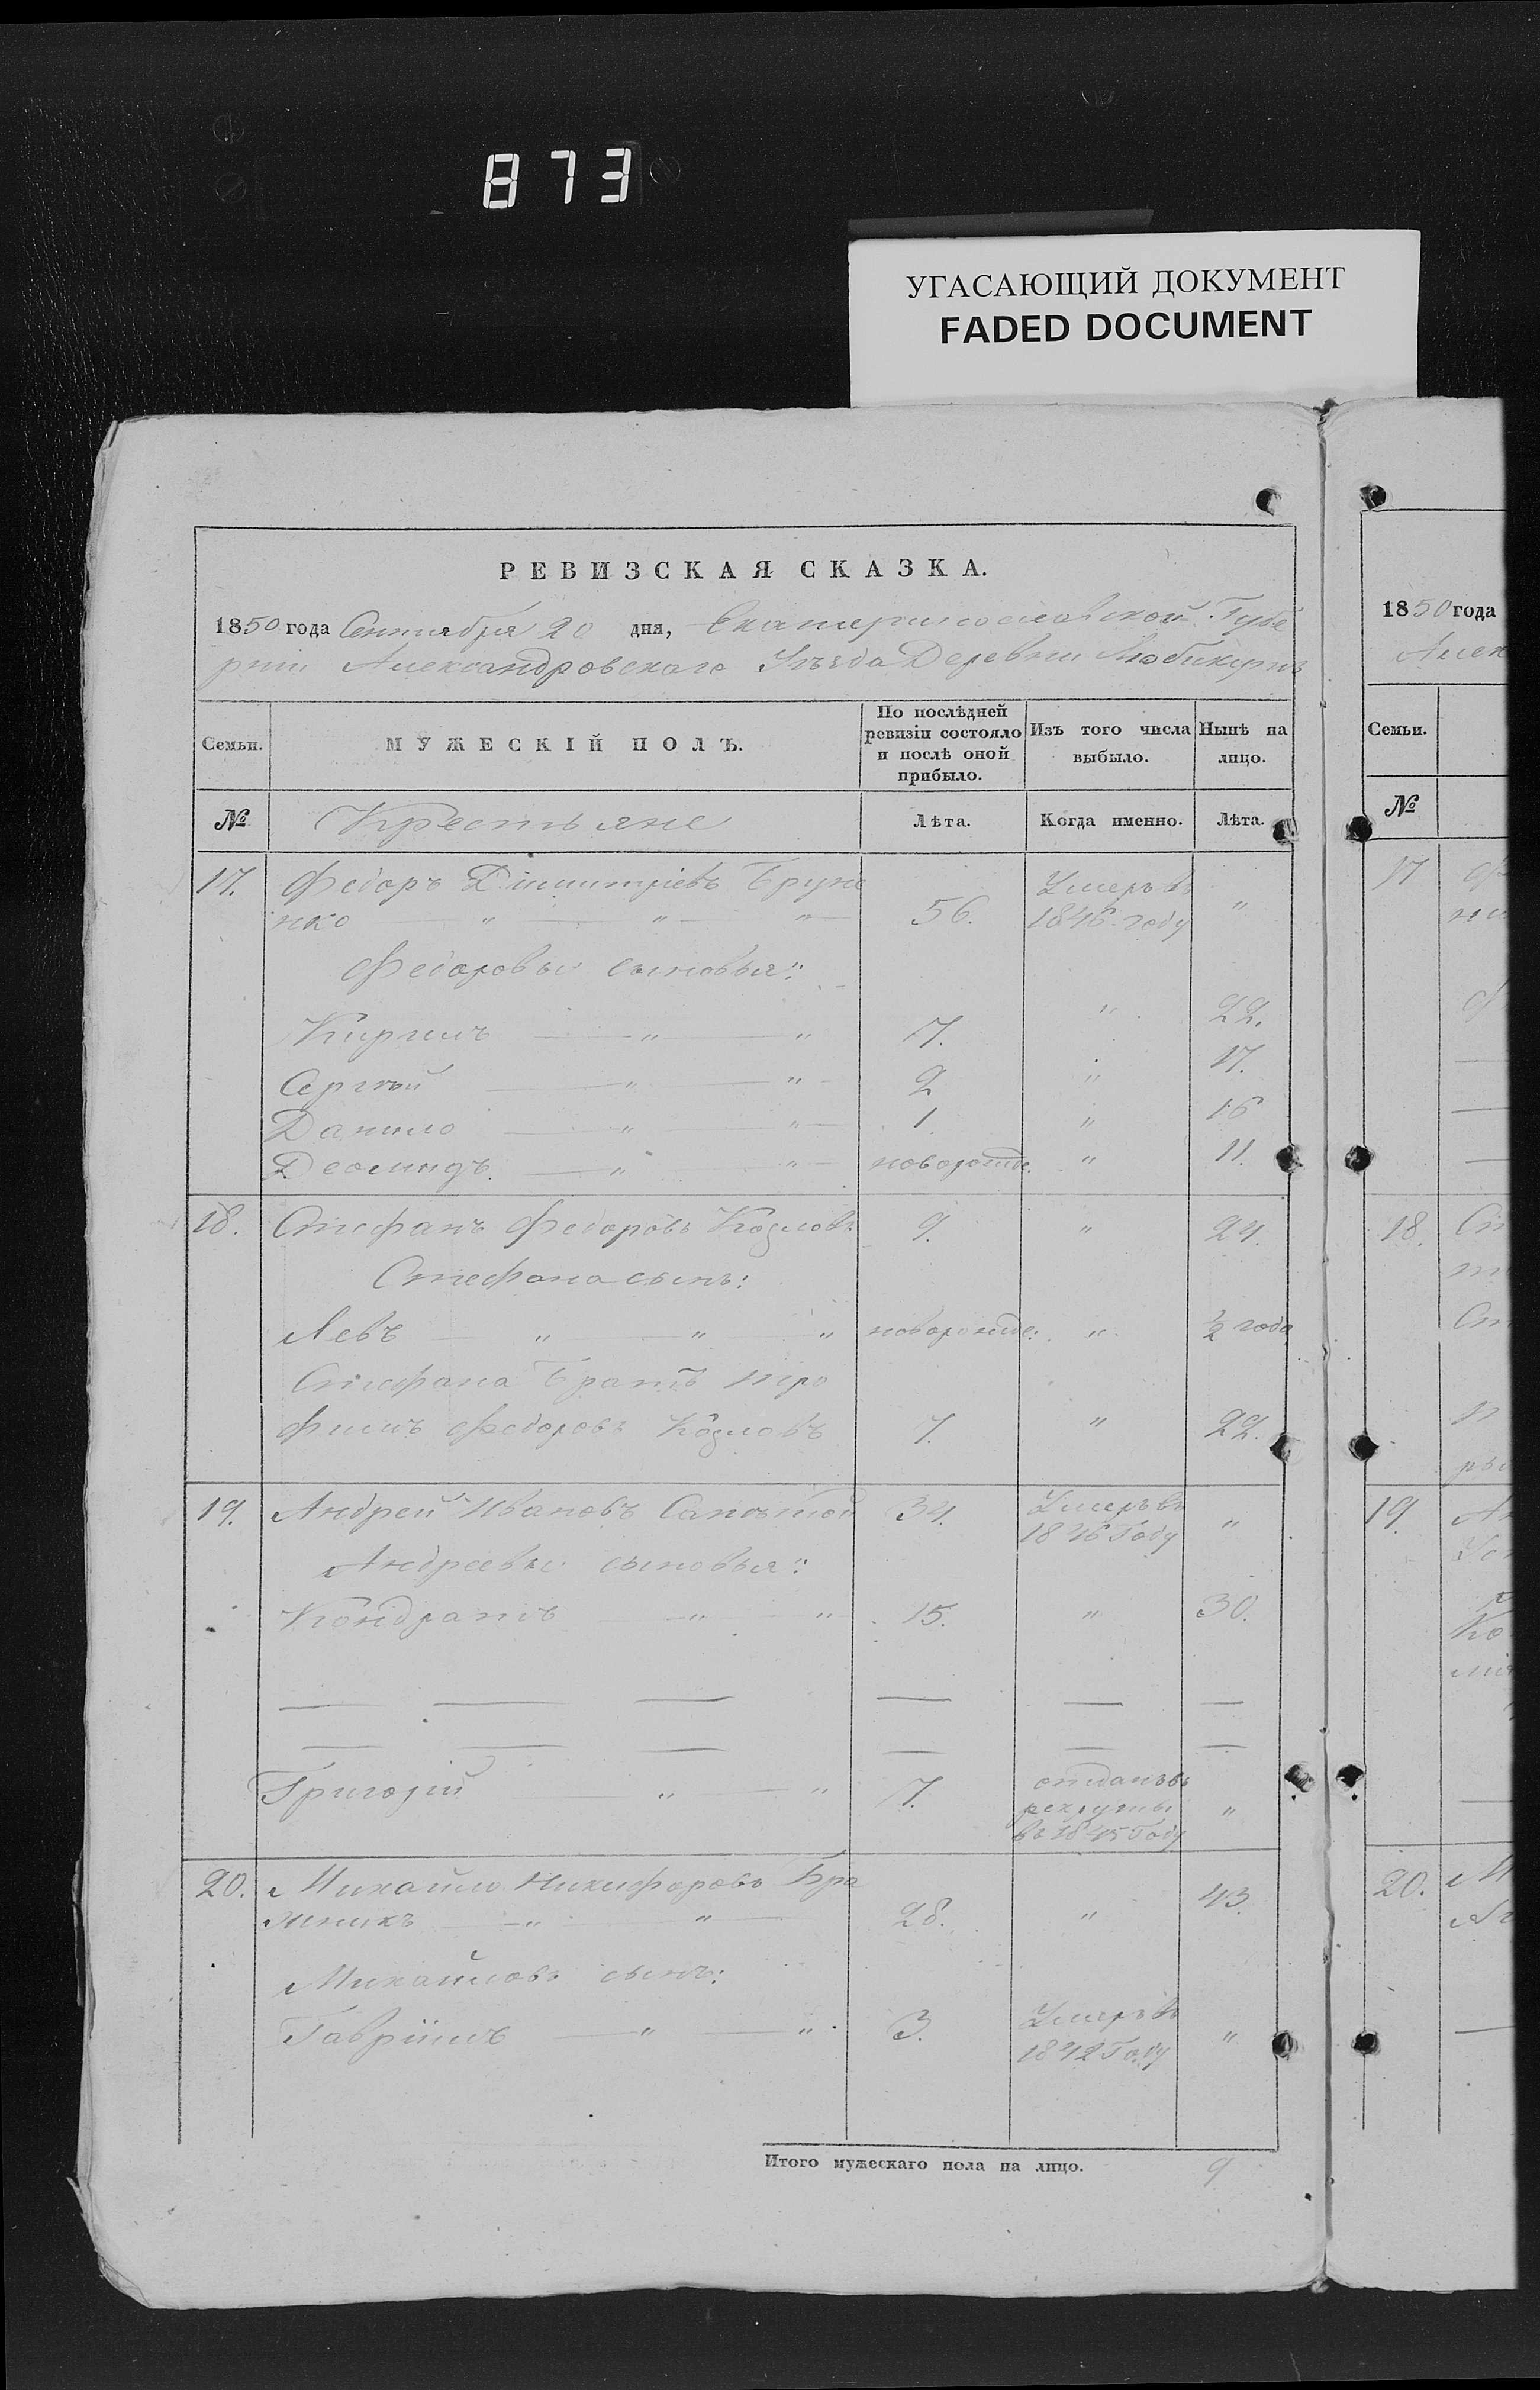 873
УГАСАЮЩИЙ ДОКУМЕНТ
FADED DOCUMENT
РЕВИЗСКАЯ СКАЗКА.
1850 года Сентября 20 дня, Екатеринославской Губе
рніи Александровскаго Уѣзда Деревни
Семьи. МУЖЕСКІЙ ПОЛЪ. По послѣдней ревизіи состояло и послѣ оной прибыло. Изъ того числа выбыло. Нынѣ на лицо.
№ Крестьяне Лѣта. Когда именно. Лѣта.
17. Федоръ Димитріевъ Бруне Умеръ въ
нко " " " 56. 1846 году "
Федоровы сыновья:
Кирилъ " " 7. " 22.
Сергѣй " " 2 " 17.
Данило " " 1 " 16
" " новорожде. " 11.
18. Стефанъ Федоровъ Козловъ 9. " 24.
Стефана сынъ:
Левъ " " " новорожде: " ½ года
Стефана Братъ Тро
фимъ Федоровъ Козловъ 7. " 22.
19. Андрей Ивановъ 34. Умеръ въ
1846 Году "
Андреевы сыновья:
Кондратъ " " 15. " 30.
Григорій " " 7. отданъ въ
рекруты "
въ 1845 Году
20. Михайло Никифоровъ Бра
жникъ " " 28. " 43.
Михайловъ сынъ:
Гавріилъ " " 3. Умеръ въ
1842 Году "
Итого мужескаго пола на лицо. 9
1850 года
Алек
Семьи.
№
17
18.
19.
20.